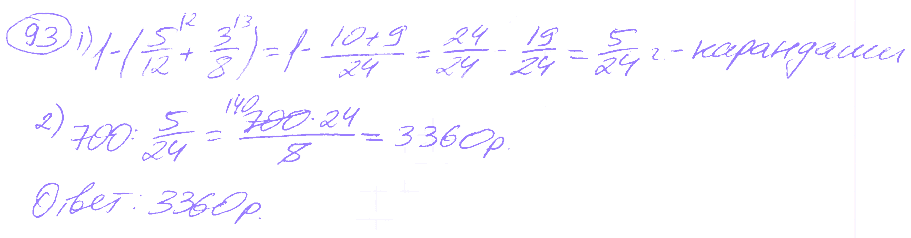 93 1) 1-(5/12 + 3/8) = 1- 10+9/24 = 24/24 - 19/24 = 5/24 ч. - карандаши
2) 700 : 5/24 = 700·24/8 = 3360р.
Ответ: 3360р.